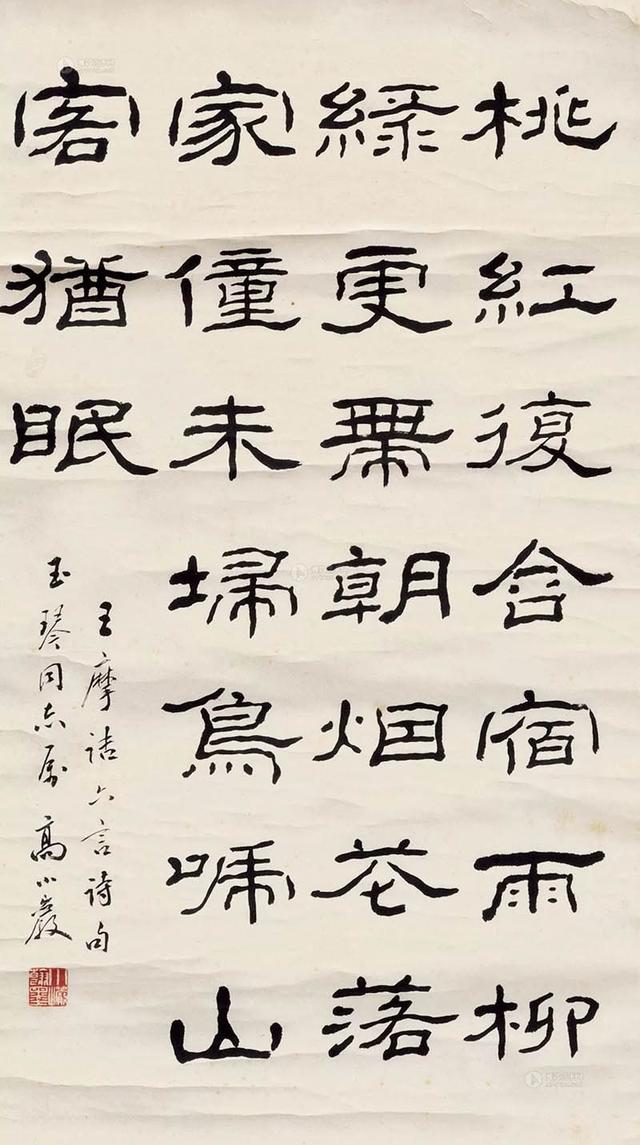 桃紅復含宿雨柳
綠更帶朝烟花落
家僮未埽鳥啼山
客猶眠
王摩詰六言詩句
玉琴同志属 高小巖